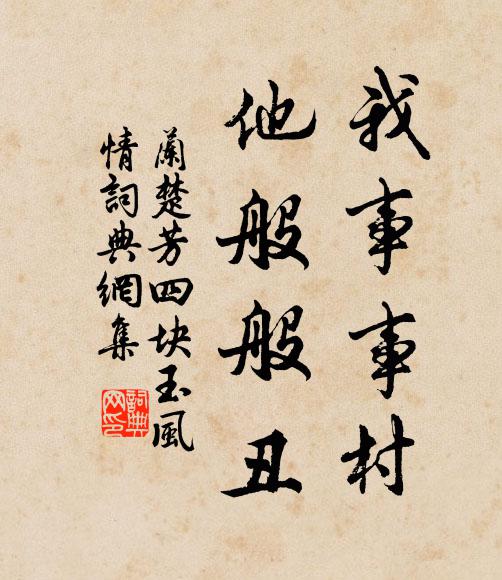 我事事村
他般般丑
蘭楚芳四块玉風
情詞典網集
詞典
网印